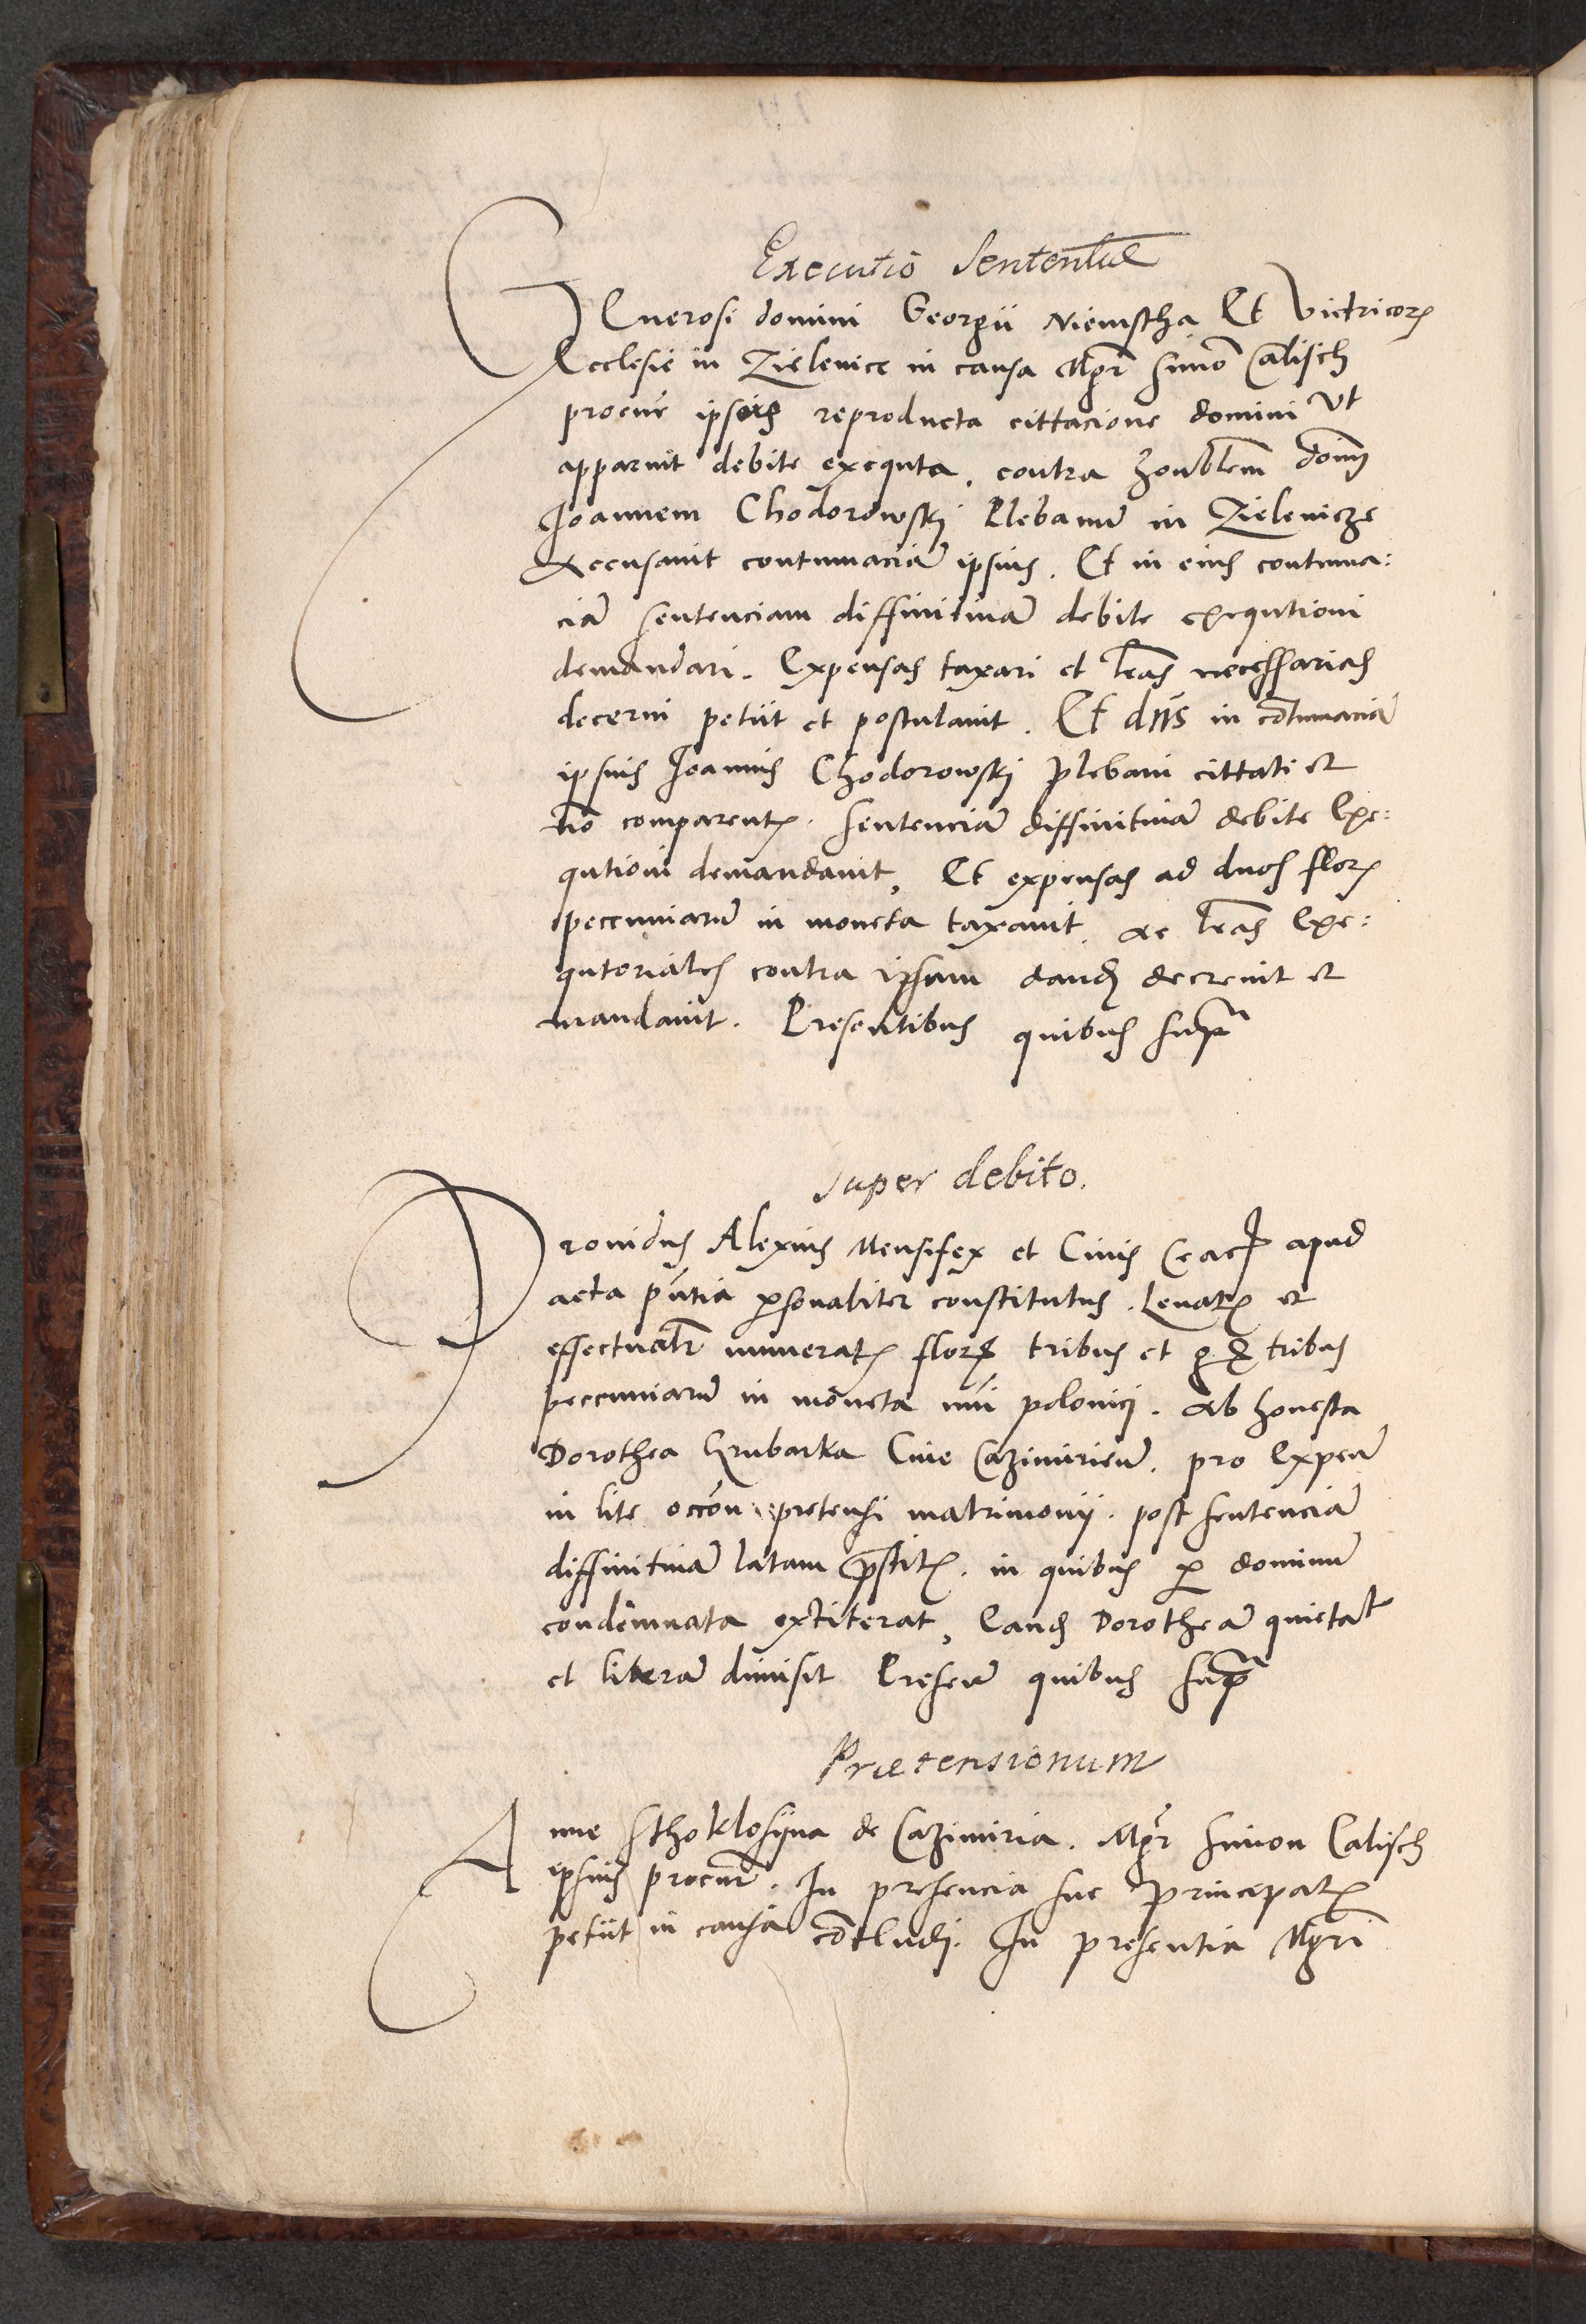 Executio Sententiæ
GEnerosi domini Georgii Niemstha Et victricorz
Ecclesie in Zielenice in causa Mgr̃ Simõ Calisch
procur̃ ipsius reproducta cittacione domini vt
apparuit debite exequta, contra honblem̃ dom̃
Joannem Chodorowskj Plebanũ in Zielenicze
Accusauit contumaciã ipsius. Et in eius contuma:
ciã sentenciam diffinitiuã debite exequtioni
demandari. Expensas taxari et lr̃as necessarias
decerni petiit et postulauit. Et dñs in cõtumaciã
ipsius Joannis Chodorowskj plebani cittati et
nõ comparentz. Sentenciã diffinitiuã debite Exe:
qutioni demandauit, Et expensas ad duos florz
peccuniarũ in moneta taxauit, ac lr̃as Exe:
qutoriales contra ipsum dandas decreuit et
mandauit. Presentibus quibus supra
Super debito.
Prouidus Alexius Mensifex et Ciuis Crac apud
acta pñtia personaliter constitutus. Leuatz et
effectualr̃ numeratz florz tribus et gr tribus
peccuniarũ in moneta nũi polonicj. Ab honesta
Dorothea Grubarka Ciue Cazimirien̄. pro Expen̄
in lite occõn pretensi matrimonij. post sentenciã
diffinitiuã latam p̃stitz. in quibus per dominũ
condemnata extiterat, Eandẽ Dorotheã quietatã
et liberã dimisit Presen̄ quibus supra
Prætensionum
Anne Sthoklosyna de Cazimiria. Mgr̃ Simon Calisch
ipsius procur̃. In presencia sue principatz
petiit in causa cõcludj. In presentia Mgr̃i